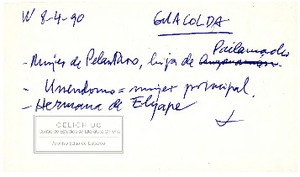 W 8-4-90 GUACOLDA
- Mujer de Pelantaro, hija de Pailamacho
- Unendomo = mujer principal.
- Hermana de Elyape
CELICH UC